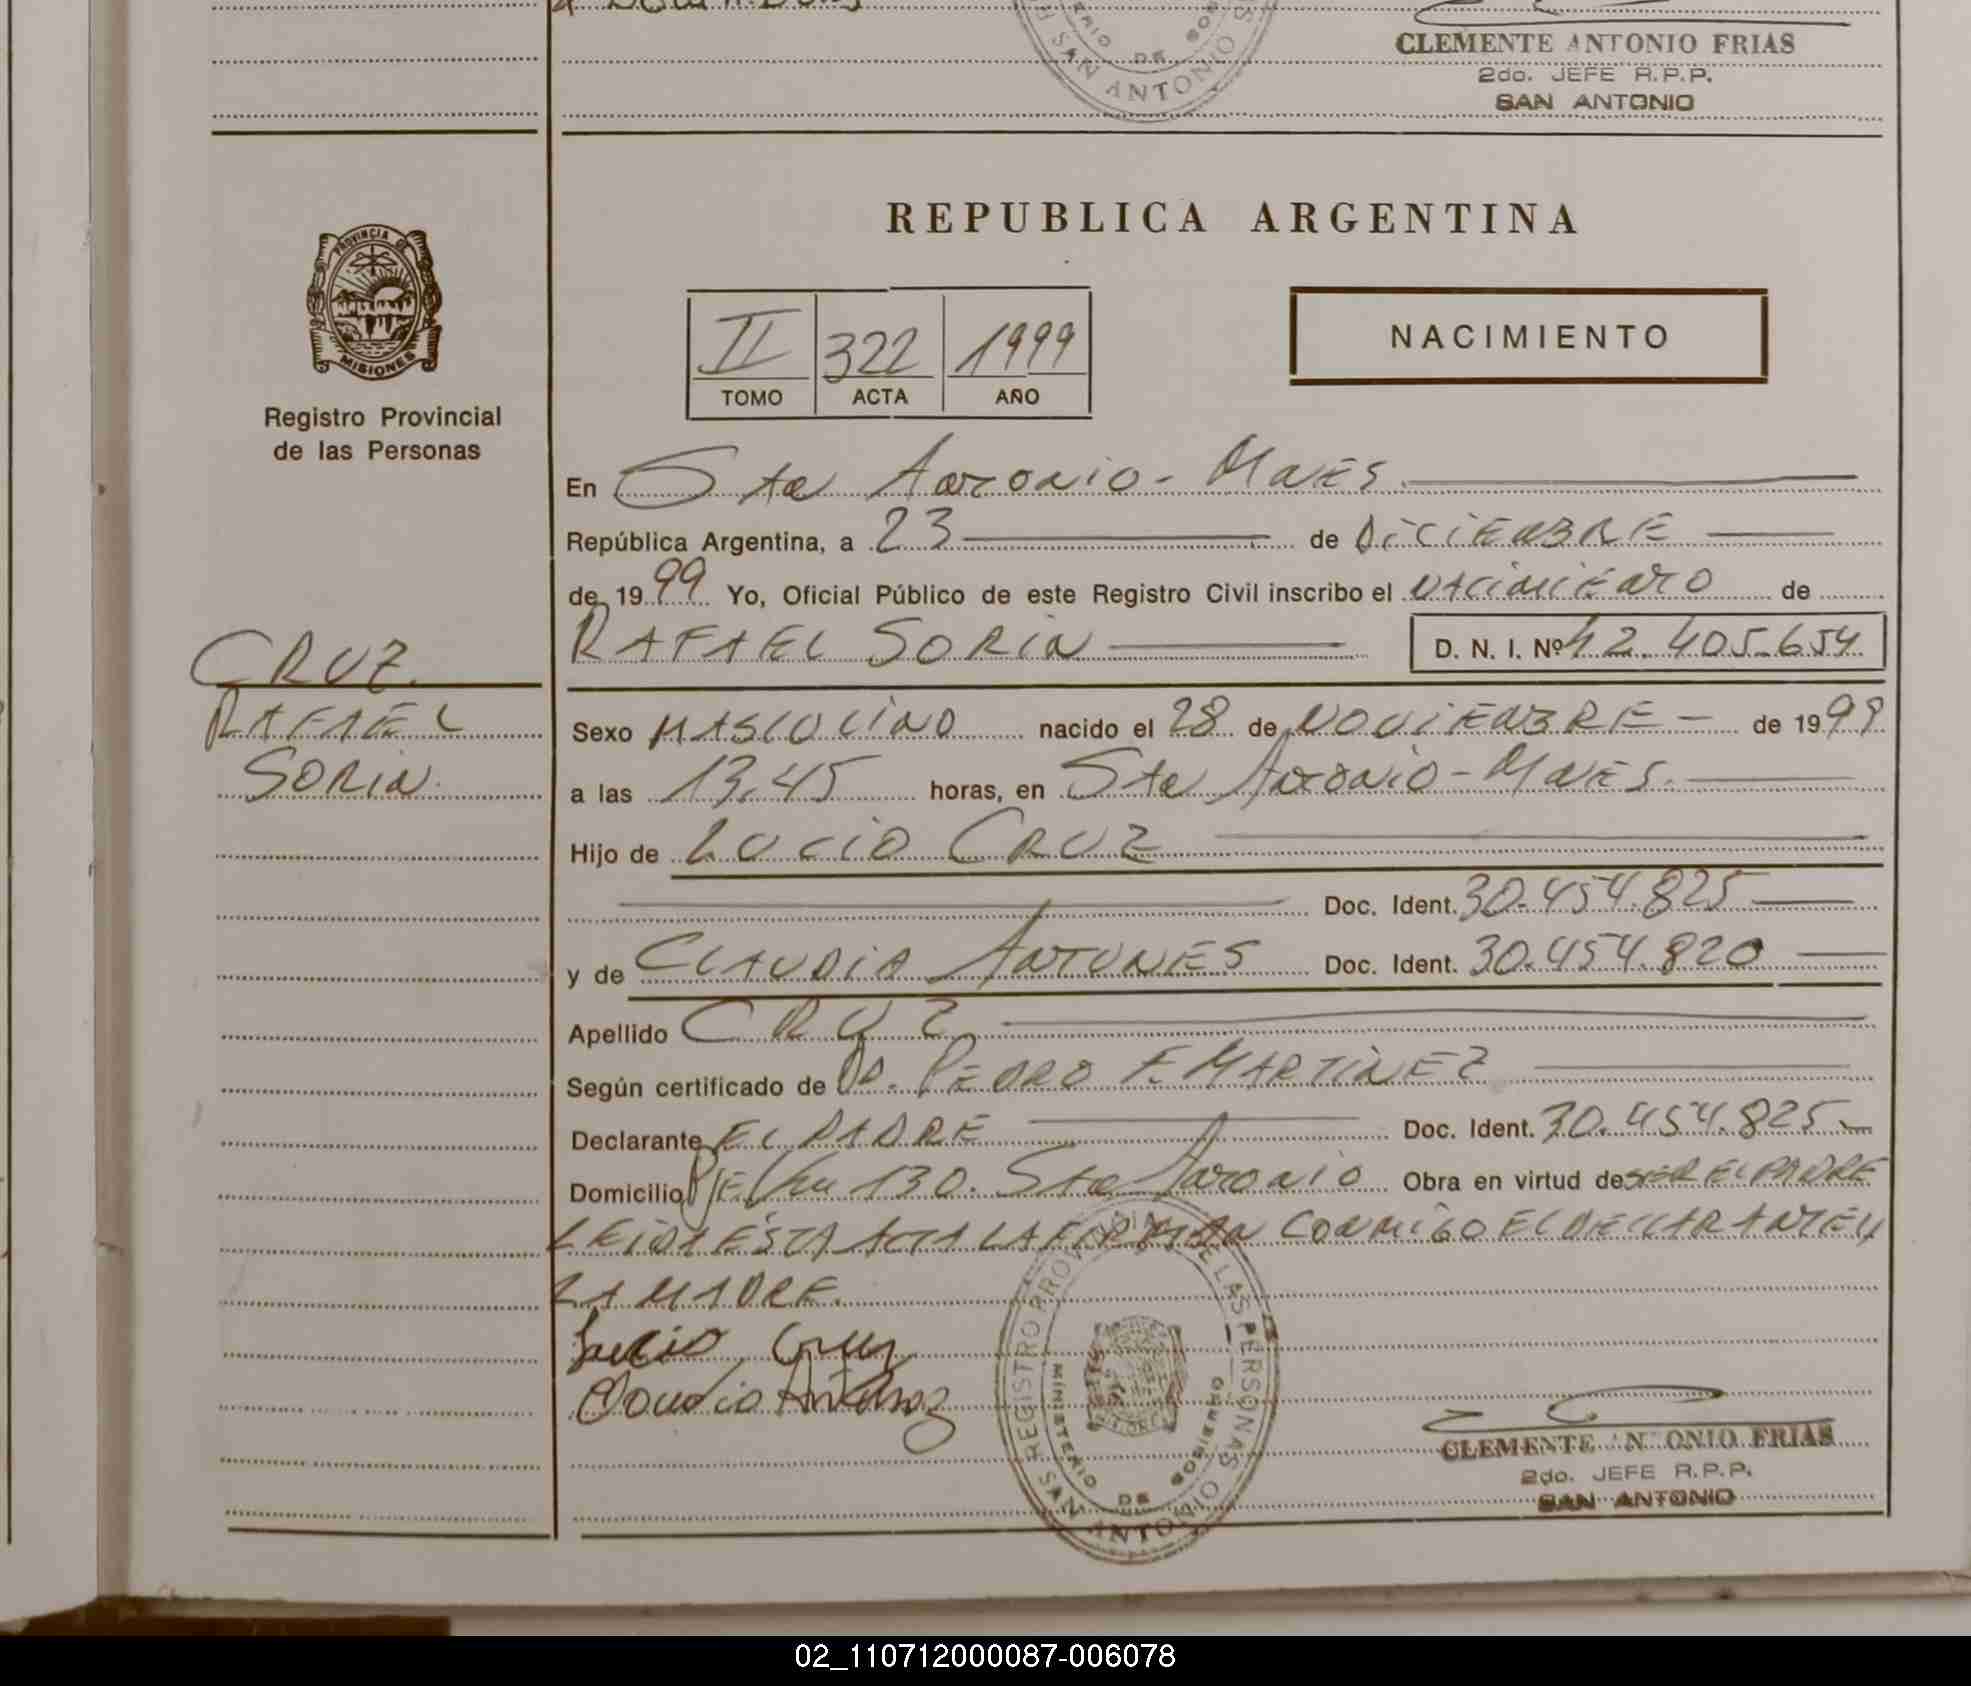 CLEMENTE ANTONIO FRIAS
2do. JEFE R.P.P.
SAN ANTONIO
SAN ANTONIO
PROVINCIA DE
MISIONES
Registro Provincial
de las Personas
REPUBLICA ARGENTINA
II 322 1999
TOMO ACTA AÑO
NACIMIENTO
En Sto Antonio - Mnes.
República Argentina, a 23 de DiCiEMBRE
de 1999 Yo, Oficial Público de este Registro Civil inscribo el NACiMiENTO de
RAFAEL SORiN D. N. I. Nº 42.405.654
CRUZ.
RAFAEL
SORiN.
Sexo MASCULiNO nacido el 28 de NOViEMBRE - de 1999
a las 13,45 horas, en Sto Antonio - Mnes.
Hijo de LUCiO CRUZ
Doc. Ident. 30.454.825
y de CLAUDiA ANTUNES Doc. Ident. 30.454.820
Apellido CRUZ
Según certificado de DR. PEDRO F. MARTiNEZ
Declarante EL PADRE Doc. Ident. 30.454.825
Domicilio 130. Sto Antonio Obra en virtud de SER EL PADRE
LEiDA ESTA ACTA LA FiRMAN CONMiGO EL DECLARANTE Y
LA MADRE.
Lucio Cruz
Claudia Antunez
REGISTRO PROVINCIAL DE LAS PERSONAS
MINISTERIO DE GOBIERNO
SAN ANTONIO
CLEMENTE ANTONIO FRIAS
2do. JEFE R.P.P.
SAN ANTONIO
02_110712000087-006078